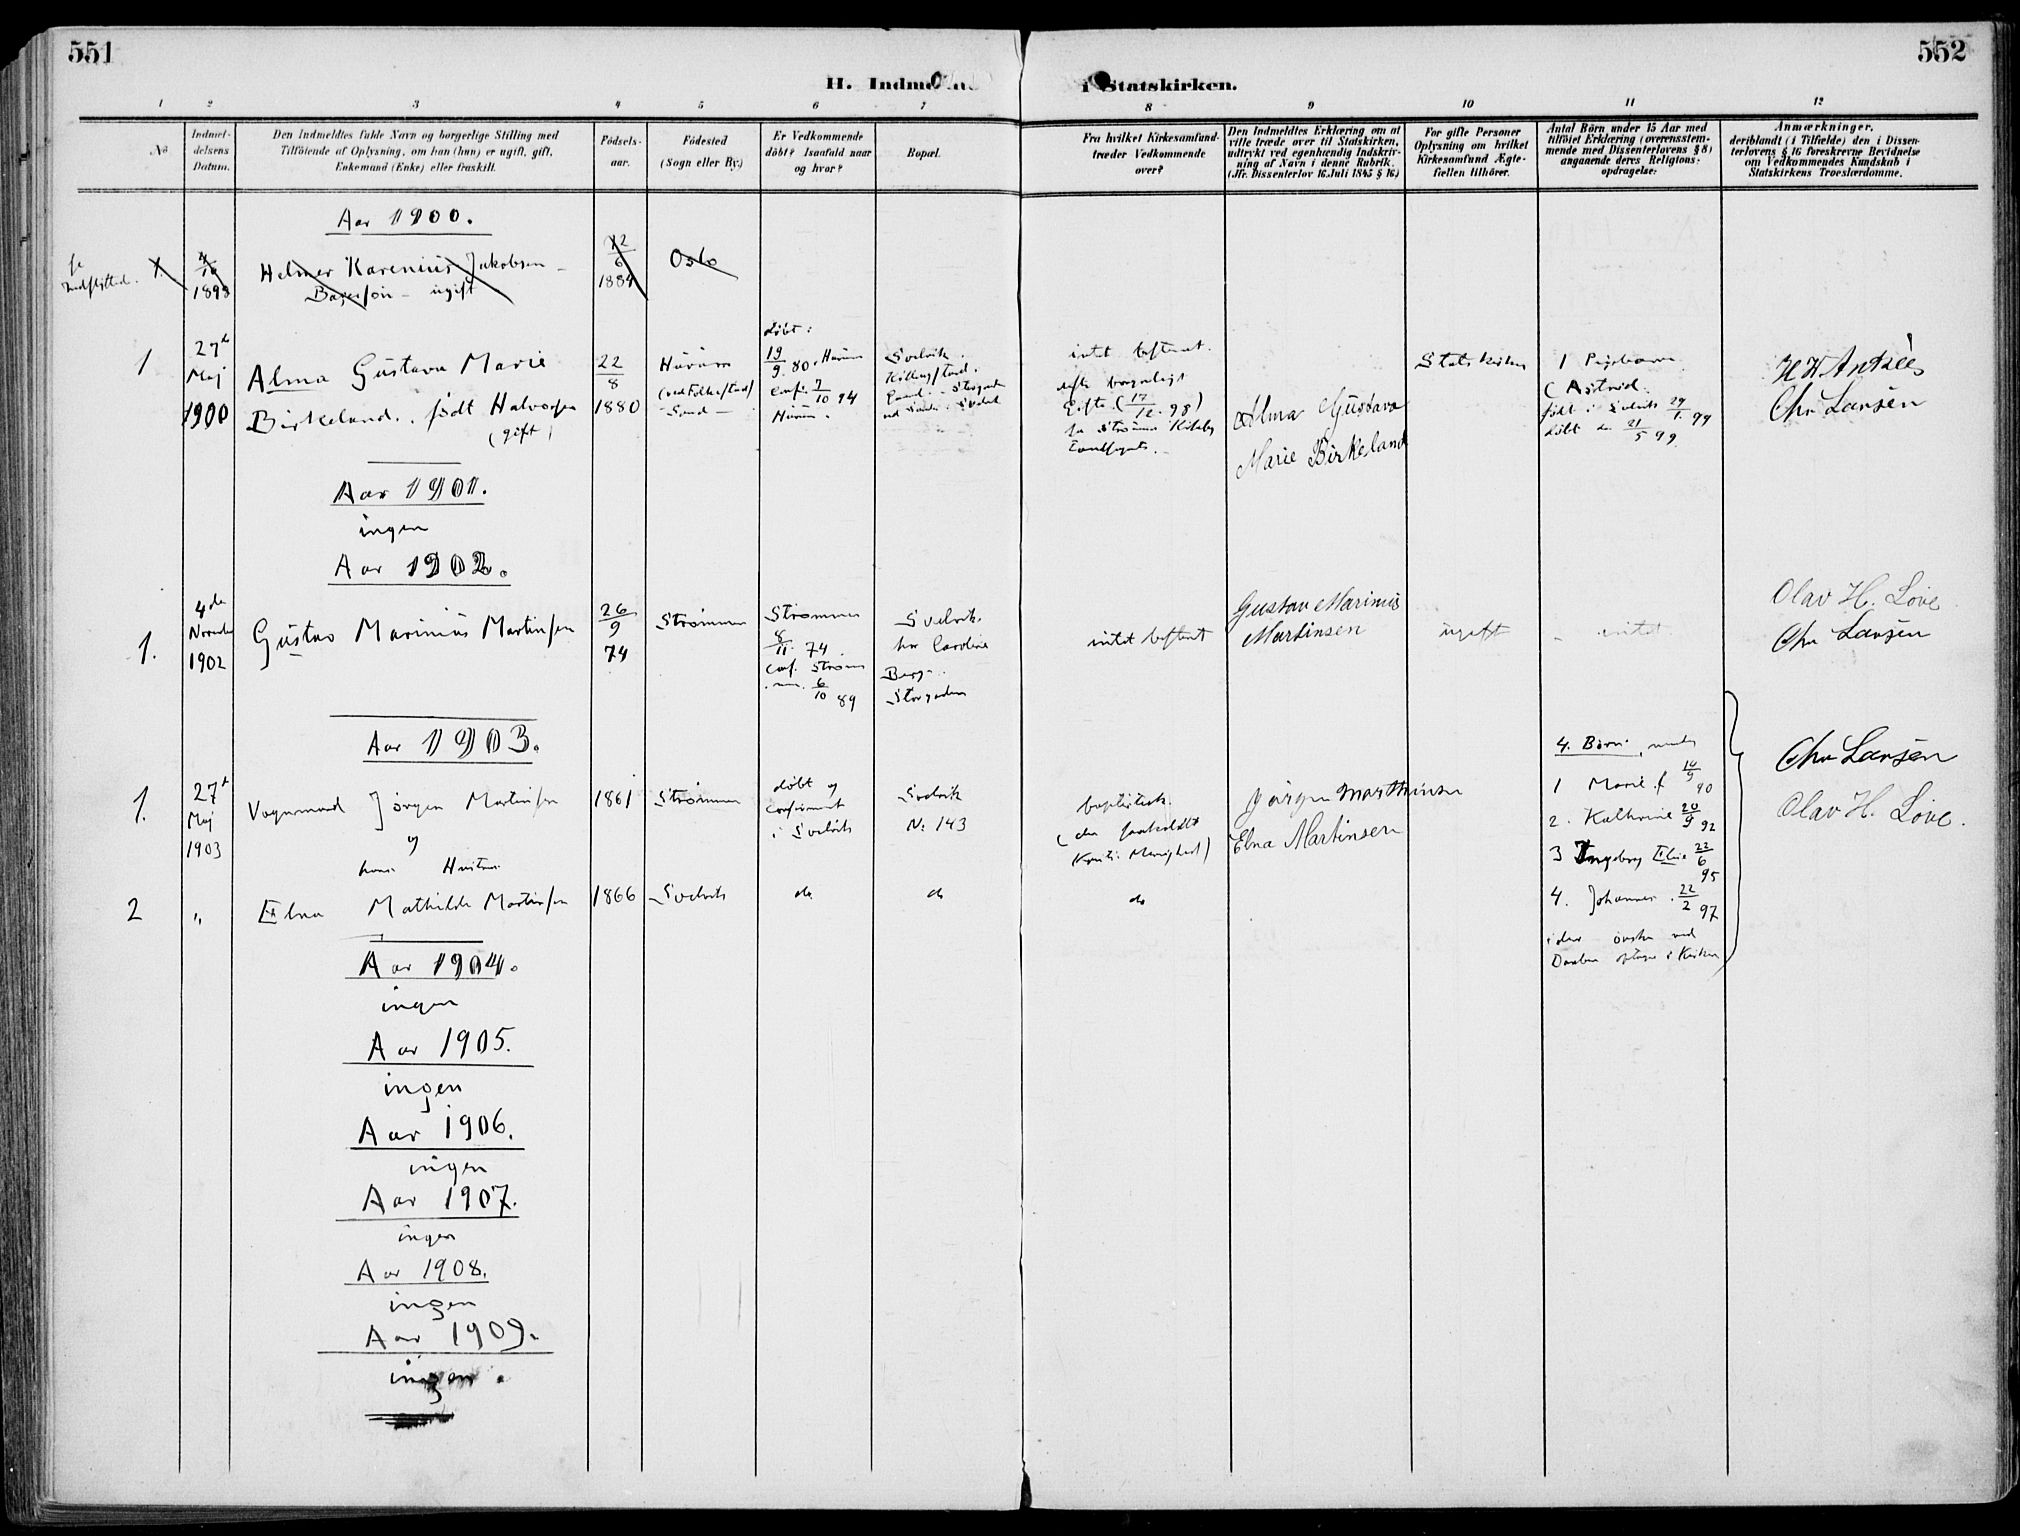 551
552
H. Indme
i Statskirken.
1 2 3 4 5 6 7 8 9 10 11 12
No
Indmel-
delsens
Datum.
Den Indmeldtes fulde Navn og borgerlige Stilling med
Tilföiende af Oplysning, om han (hun) er ugift, gift,
Enkemand (Enke) eller fraskilt.
Födsels-
aar.
Födested
(Sogn eller By.)
Er Vedkommende
döbt? Isaafald naar
og hvor?
Bopæl.
Fra hvilket Kirkesamfund-
træder Vedkommende
over?
Den Indmeldtes Erklæring om at
ville træde over til Statskirken,
udtrykt ved egenhændig Indskriv-
ning af Navn i denne Rubrik.
(Jfr. Dissenterlov 16 Juli 1845 § 16.)
For gifte Personer
Oplysning om hvilket
Kirkesamfund Ægte-
fællen tilhörer.
Antal Börn under 15 Aar med
tilföiet Erklæring (overensstem-
mende med Dissenterlovens § 8)
angaaende deres Religions-
opdragelse:
Anmærkninger,
deriblandt (i Tilfælde) den i Dissen-
terlovens § 16 foreskrevne Bevidnelse
om Vedkommendes Kundskab i
Statskirkens Troeslærdomme.
Aar 1900.
se
Indflytted.
1
4
10
1898
Helmer Karenius Jakobsen
ugift
12
6
1884
Oslo
1
27de
Maj
1900
Alma Gustava Marie
Birkeland. født Halvorsen
(gift)
22
8
1880
Hurum
døbt:
19
9 80. Hurum
conf. 7
10 94
Hurum.
Svelvik.
intet bestemt.
Gift (17
12. 98)
Alma Gustava
Marie Birkeland
Statskirken
1 Pigebarn
(Astrid.
født i Svelvik 29
1. 99
døbt d. 21
5 99
H H Antzée
Chr Larsen
Aar 1901.
ingen
Aar 1902.
1.
4de
1902
Gustav Marinius Martinsen
26
9
74
Strømmen
Strømmen
8
11. 74.
conf. Strøm
men. 6
10 89
Svelvik.
hos Caroline
Berg.
Storgaden
intet bestemt
Gustav Marinius
Martinsen
ugift
intet
Olav H. Løve
Chr Larsen
Aar 1903.
1.
27de
Maj
1903
Vognmand Jørgen Martinsen
og
hans Hustru
1861
Strømmen
døbt og
confirmert
i Svelvik
Svelvik
N: 143
baptistisk.
Jørgen Marthinsen
Elna Martinsen
4. Børn
1 Marie f. 10
9 90
2. Kathrine 20
9 92
3 Ingeborg Elise 22
6 95
4. Johannes. 22
2 97
Chr Larsen
Olav H. Løve.
2
"
Elna Mathilde Martinsen
1866
Svelvik
do
do
do
Aar 1904.
ingen
Aar 1905.
ingen
Aar 1906.
ingen
Aar 1907.
ingen
Aar 1908.
ingen
Aar 1909.
ingen